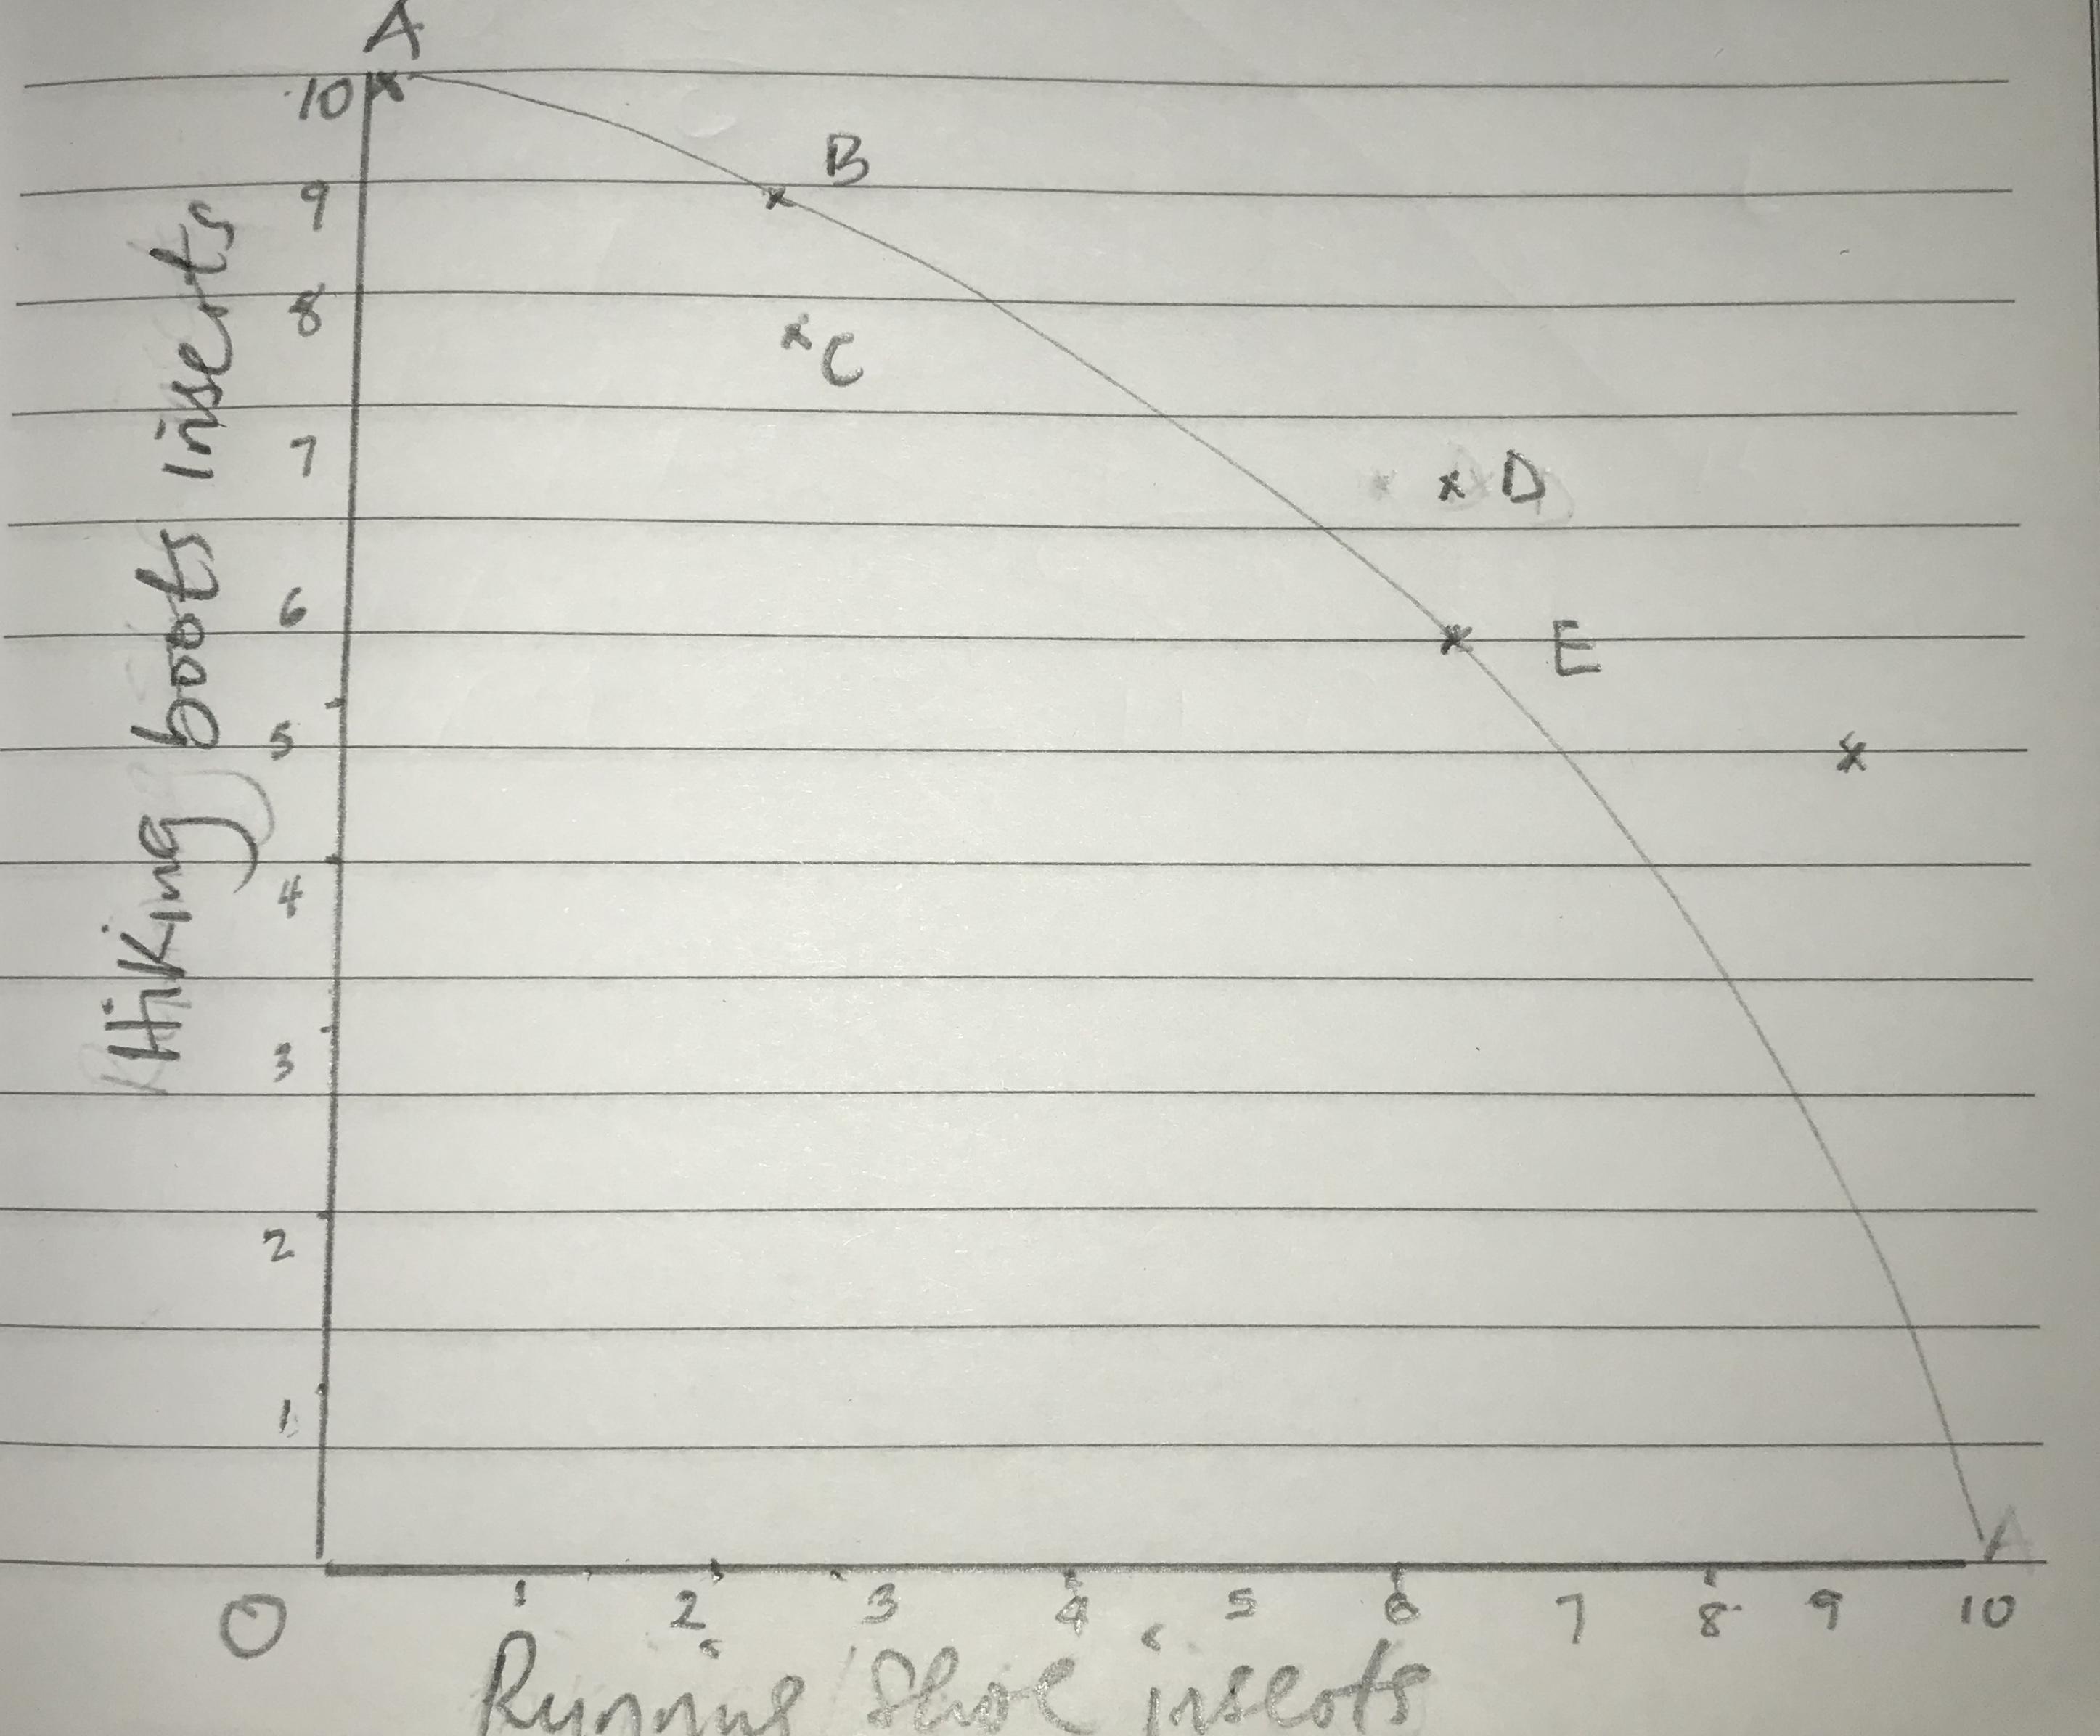 A
10
B
9
8
C
7
D
6
E
5
4
3
2
1
A
0
1 2 3 4 5 6 7 8 9 10
Hiking boots inserts
Running shoe inserts